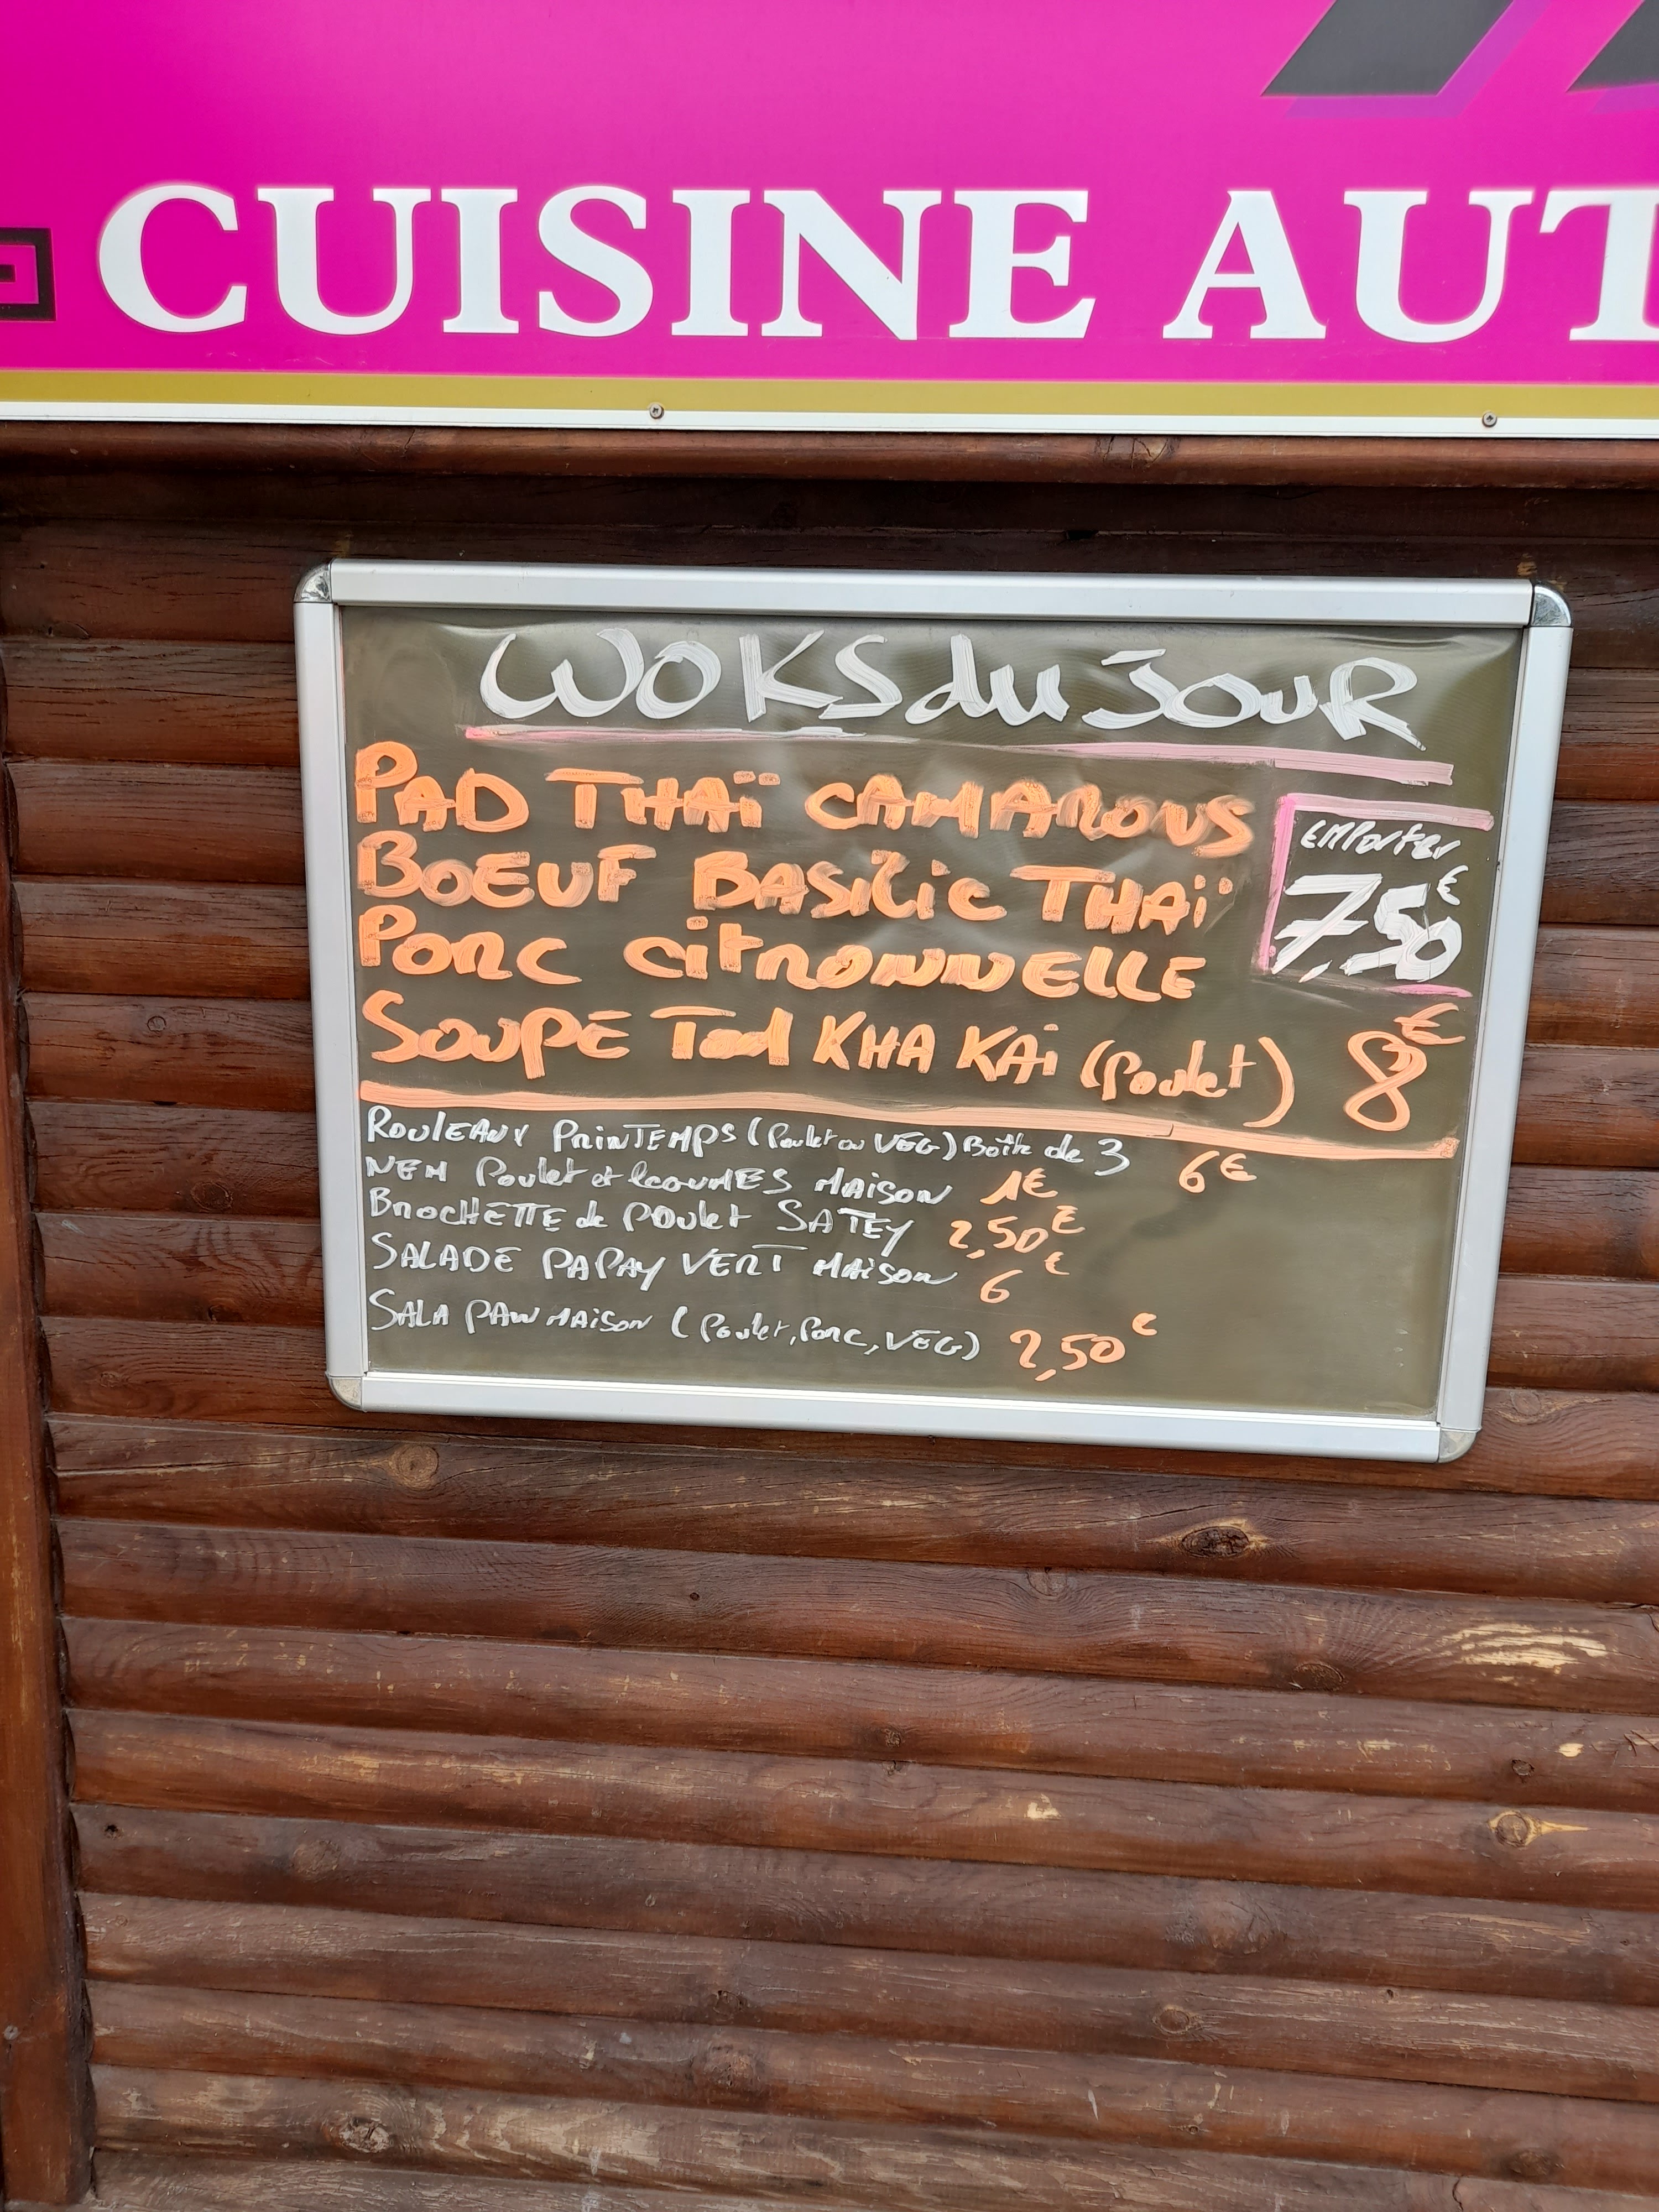 CUISINE AUT
WOKS du JOUR
PAD THAÏ CAMAROUS
BOEUF BASILIC THAÏ
PORC citRONNELLE
emporter
7,50€
SOUPE Tod KHA KAi (poulet) 8€
ROULEAUX PRINTEMPS (Poulet ou VEG) Boîte de 3 6€
NEM Poulet et legoumes MAISON 1€
BROCHETTE de POULET SATEY 2,50€
SALADE PAPAY VERT MAISON 6€
SALA PAW MAISON (Poulet, Porc, VEG) 2,50€